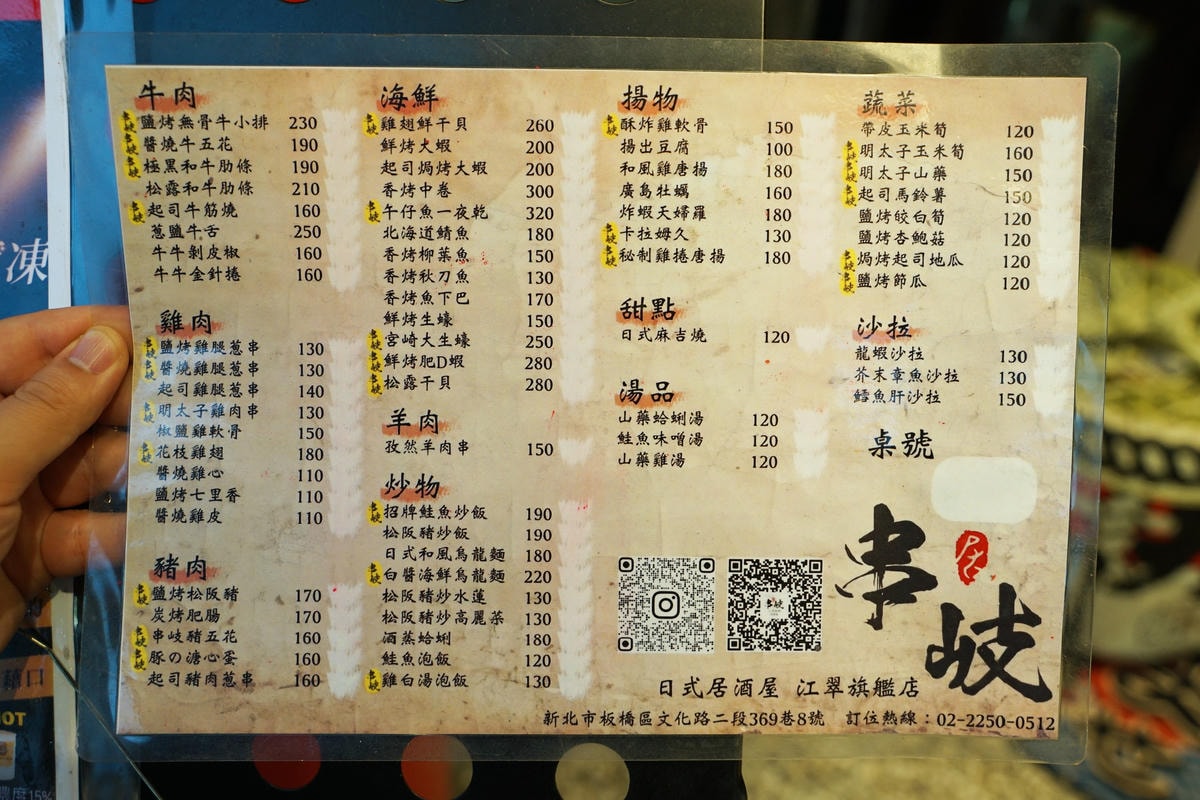 牛肉
鹽烤無骨牛小排 230
醬燒牛五花 190
極黑和牛肋條 190
松露和牛肋條 210
起司牛筋燒 160
蔥鹽牛舌 250
牛牛剝皮椒 160
牛牛金針捲 160
雞肉
鹽烤雞腿蔥串 130
醬燒雞腿蔥串 130
起司雞腿蔥串 140
明太子雞肉串 130
椒鹽雞軟骨 150
花枝雞翅 180
醬燒雞心 110
鹽烤七里香 110
醬燒雞皮 110
豬肉
鹽烤松阪豬 170
炭烤肥腸 170
串岐豬五花 160
豚の溏心蛋 160
起司豬肉蔥串 160
海鮮
雞翅鮮干貝 260
鮮烤大蝦 200
起司焗烤大蝦 200
香烤中卷 300
午仔魚一夜乾 320
北海道鯖魚 180
香烤柳葉魚 150
香烤秋刀魚 130
香烤魚下巴 170
鮮烤生蠔 150
宮崎大生蠔 250
鮮烤肥D蝦 280
松露干貝 280
羊肉
孜然羊肉串 150
炒物
招牌鮭魚炒飯 190
松阪豬炒飯 190
日式和風烏龍麵 180
白醬海鮮烏龍麵 220
松阪豬炒水蓮 130
松阪豬炒高麗菜 130
酒蒸蛤蜊 180
鮭魚泡飯 120
雞白湯泡飯 130
揚物
酥炸雞軟骨 150
揚出豆腐 100
和風雞唐揚 180
廣島牡蠣 160
炸蝦天婦羅 180
卡拉姆久 130
秘制雞捲唐揚 180
甜點
日式麻吉燒 120
湯品
山藥蛤蜊湯 120
鮭魚味噌湯 120
山藥雞湯 120
蔬菜
帶皮玉米筍 120
明太子玉米筍 160
明太子山藥 150
起司馬鈴薯 150
鹽烤皎白筍 120
鹽烤杏鮑菇 120
焗烤起司地瓜 120
鹽烤節瓜 120
沙拉
龍蝦沙拉 130
芥末章魚沙拉 130
鱈魚肝沙拉 150
桌號
串岐
居
日式居酒屋 江翠旗艦店
新北市板橋區文化路二段369巷8號 訂位熱線：02-2250-0512
凍